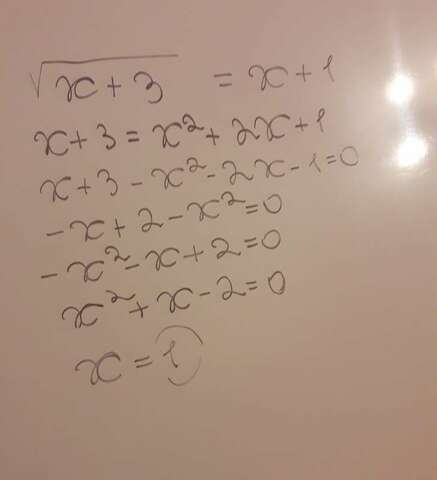 √(x+3) = x+1
x+3 = x²+2x+1
x+3-x²-2x-1=0
-x+2-x²=0
-x²-x+2=0
x²+x-2=0
x=1